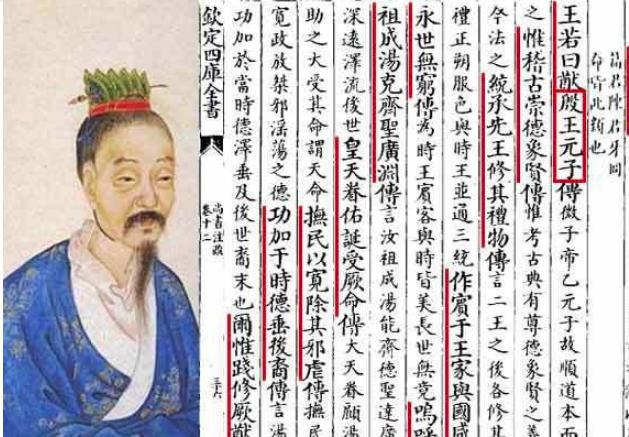 君陳君牙冏
命皆此類也
王若曰猷殷王元子傳微子帝乙元子故順道本而
之惟稽古崇德象賢傳惟考古典有尊德象賢之義
今法之統承先王修其禮物傳言二王之後各修其
禮正朔服色與時王並通三統作賓于王家與國咸
永世無窮傳為時王賓客與時皆美長世無竟嗚呼
祖成湯克齊聖廣淵傳言汝祖成湯能齊德聖達廣
深遠澤流後世皇天眷佑誕受厥命傳大天眷顧湯
助之大受其命謂天命撫民以寛除其邪虐傳撫民
寛政放桀邪淫蕩之德功加于時德垂後裔傳言湯
功加於當時德澤垂及後世裔末也爾惟踐修厥猷
欽定四庫全書
尚書注疏
卷十二